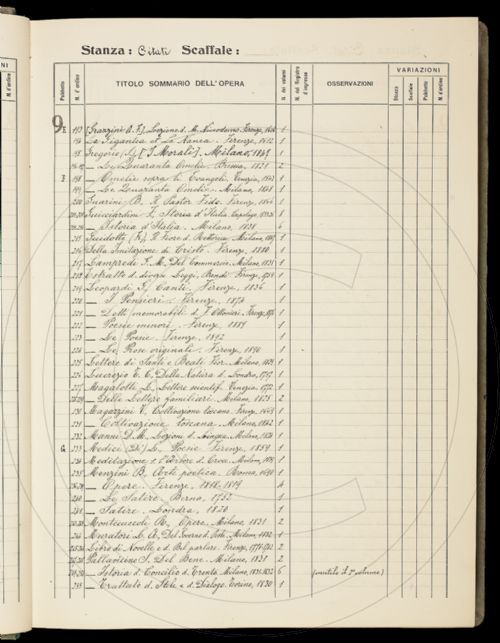 Stanza: Citati Scaffale:
VARIAZIONI
Palchetto N. d'ordine TITOLO SOMMARIO DELL'OPERA N. dei volumi N. del Registro d'ingresso OSSERVAZIONI Stanza Scaffale Palchetto N. d'ordine
9 E 193 [Grazzini A. F.], Lezione d. M. Nicodemo. Firenze, 1
194 La Gigantea et La Nanea. Firenze, 1612 1
195 Gregorio (S.), I Morali. Milano, 1
— Le Quaranta Omelie. Brescia, 1821 2
F 198 — Omelie sopra li Evangeli. Venezia, 1543 1
199 — Le Quaranta Omelie. Milano, 1848 1
200 Guarini B. Il Pastor Fido. Firenze, 1866 1
Guicciardini F., Storia d'Italia. Capolago, 8
— Istoria d'Italia. Milano, 1838 6
215 Guidotto (F.), Il Fiore di Rettorica. Milano, 1
216 Della Imitazione di Cristo. Firenze, 1
217 Lampredi G. M., Del Commercio. Milano, 1831 1
218 Estratto d. diverse Leggi, Bandi. Firenze, 1
219 Leopardi G., Canti. Firenze, 1836 1
220 — I Pensieri. Firenze, 1
221 — Detti memorabili d. F. Ottonieri. Firenze, 1
222 — Poesie minori. Firenze, 1889 1
223 — Le Poesie. Firenze, 1892 1
224 — Le Prose originali. Firenze, 1890 1
225 Lettere di Santi e Beati Fior. Milano, 1839 1
226 Lucrezio T. C., Della Natura d. Londra, 1717 1
227 Magalotti L., Lettere scientif. Venezia, 1772 1
— Delle Lettere familiari. Milano, 1825 2
230 Magazzini V., Coltivazione toscana. Firenze, 1
231 — Coltivazione toscana. Milano, 1842 1
232 Manni D. M., Lezioni d. Lingua. Milano, 1824 1
G 233 Medici (De') L., Poesie. Firenze, 1859 1
234 Meditazione s. l'Arbore d. Croce. Milano, 1
235 Menzini B., Arte poetica. Roma, 1690 1
— Opere. Firenze, 1818-1819 4
240 — Le Satire. Berna, 1782 1
241 — Satire. Londra, 1820 1
Montecuccoli R., Opere. Milano, 1831 2
244 Muratori L. A., Del Governo d. Peste. Milano, 1832 1
Libro di Novelle e d. Bel parlare. Firenze, 2
Pallavicino S., Del Bene. Milano, 1831 2
— Istoria d. Concilio d. Trento. Milano, 6 (mutilo il 2° volume)
255 — Trattato d. Stile e d. Dialogo. Torino, 1830 1